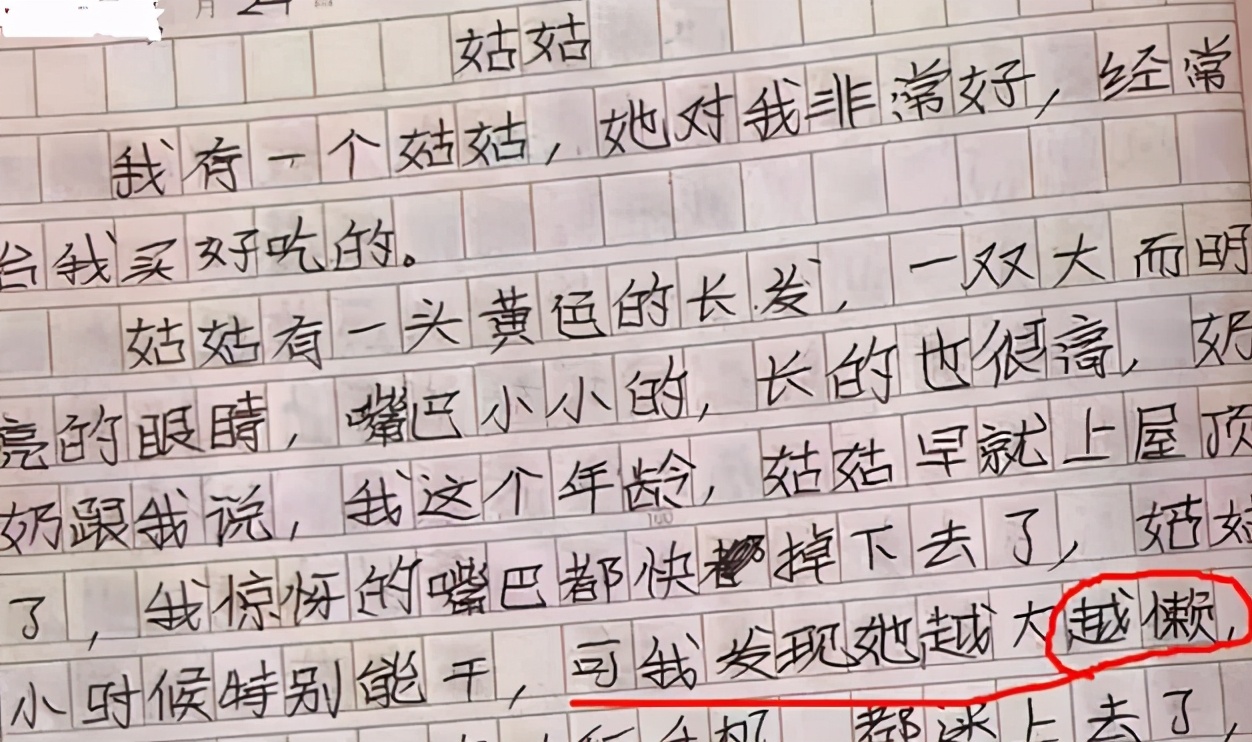 月 24
姑姑
我有一个姑姑，她对我非常好，经常
给我买好吃的。
姑姑有一头黄色的长发，一双大而明
亮的眼睛，嘴巴小小的，长的也很高，奶
奶跟我说，我这个年龄，姑姑早就上屋顶
了，我惊讶的嘴巴都快掉下去了，姑姑
小时候特别能干，可我发现她越大越懒，
手机 都迷上去了，
100